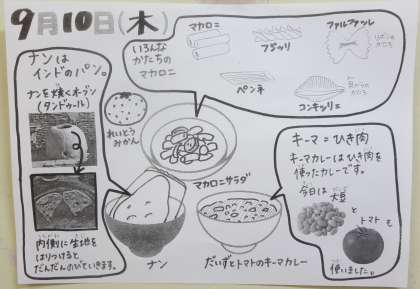 9月10日(木)
いろんな
かたちの
マカロニ
マカロニ
フジッリ
ファルファッレ
リボンの
かたち
ペンネ
コンキリエ
貝がらの
かたち
ナンは
インドのパン。
ナンを焼くオーブン
(タンドゥール)
内側に生地を
はりつけると
だんだんのびていきます。
れいとう
みかん
マカロニサラダ
ナン
だいずとトマトのキーマカレー
キーマ=ひき肉
キーマカレーはひき肉を
使ったカレーです。
今日は大豆
と
トマトも
使いました。